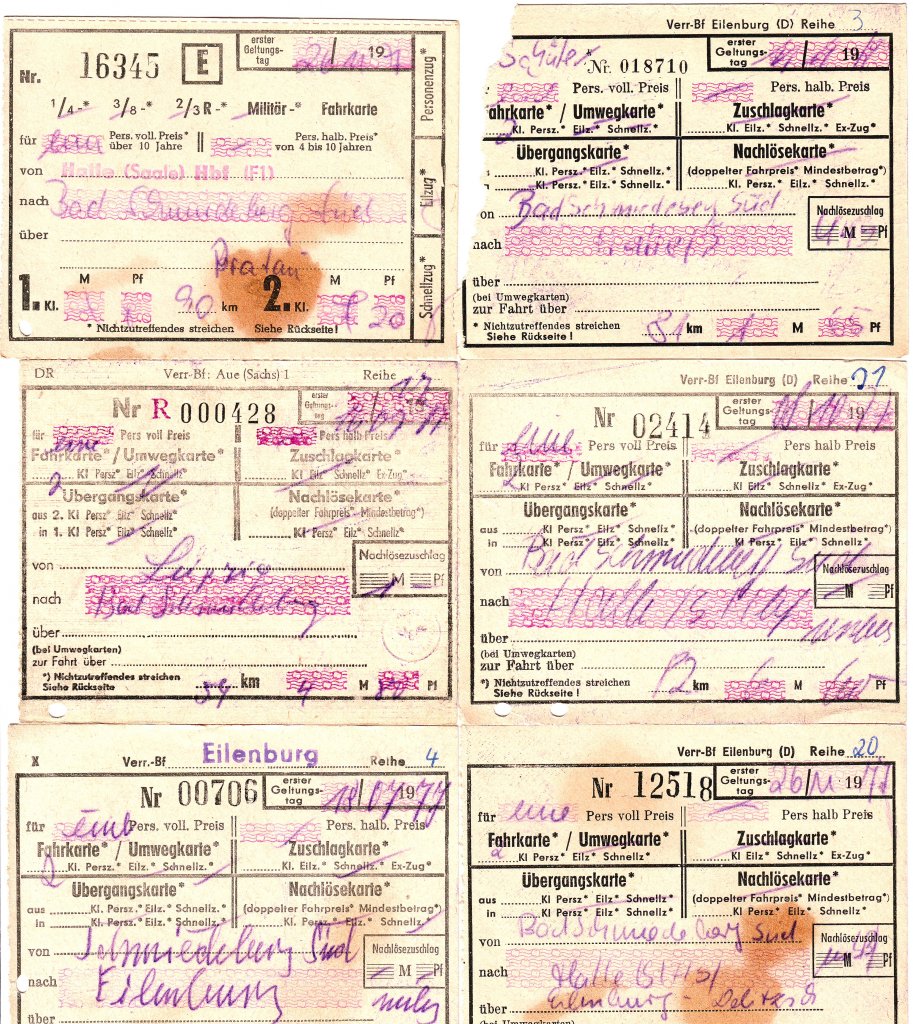 Nr. 16345 E
erster Geltungs-tag 19
1/4-* 3/8-* 2/3 R-* Militär-* Fahrkarte
für Pers. voll. Preis* über 10 Jahre Pers. halb. Preis* von 4 bis 10 Jahren
von Halle (Saale) Hbf (F1)
nach Bad Schmiedeberg Süd
über
Pratau
M Pf M Pf
1. Kl. 90 km 2. Kl. 20
* Nichtzutreffendes streichen Siehe Rückseite!
Personenzug*
Eilzug*
Schnellzug*
Verr-Bf Eilenburg (D) Reihe 3
Schüler
Nr. 018710
erster Geltungs-tag 19
Pers. voll. Preis Pers. halb. Preis
ahrkarte* / Umwegkarte* Zuschlagkarte*
Kl. Persz.* Eilz.* Schnellz.* Kl. Eilz.* Schnellz.* Ex-Zug*
Übergangskarte* Nachlösekarte*
Kl. Persz.* Eilz.* Schnellz.* (doppelter Fahrpreis* Mindestbetrag*)
Kl. Persz.* Eilz.* Schnellz.* Kl. Persz.* Eilz.* Schnellz.*
on Bad Schmiedeberg Süd
Nachlösezuschlag
M Pf
nach
über
(bei Umwegkarten)
zur Fahrt über
* Nichtzutreffendes streichen
Siehe Rückseite!
km M Pf
DR Verr-Bf: Aue (Sachs) 1 Reihe 17
Nr R 000428
erster Geltungs-tag
für eine Pers voll Preis Pers halb Preis
Fahrkarte* / Umwegkarte* Zuschlagkarte*
2 Kl Persz* Eilz* Schnellz* Kl Eilz* Schnellz* Ex-Zug*
Übergangskarte* Nachlösekarte*
aus 2. Kl Persz* Eilz* Schnellz* (doppelter Fahrpreis* Mindestbetrag*)
in 1. Kl Persz* Eilz* Schnellz* Kl Persz* Eilz* Schnellz*
von Leipzig
Nachlösezuschlag
M Pf
nach Bad Schmiedeberg
über
(bei Umwegkarten)
zur Fahrt über
*) Nichtzutreffendes streichen
Siehe Rückseite
km 4 M Pf
Verr-Bf Eilenburg (D) Reihe 21
Nr 02414
erster Geltungs-tag 1977
für eine Pers voll Preis Pers halb Preis
Fahrkarte* / Umwegkarte* Zuschlagkarte*
2 Kl Persz* Eilz* Schnellz* Kl Eilz* Schnellz* Ex-Zug*
Übergangskarte* Nachlösekarte*
aus Kl Persz* Eilz* Schnellz* (doppelter Fahrpreis* Mindestbetrag*)
in Kl Persz* Eilz* Schnellz* Kl Persz* Eilz* Schnellz*
von Bad Schmiedeberg Süd
Nachlösezuschlag
M Pf
nach Halle
über
(bei Umwegkarten)
zur Fahrt über
*) Nichtzutreffendes streichen
Siehe Rückseite!
82 km 6 M Pf
X Verr.-Bf Eilenburg Reihe 4
Nr 00706
erster Geltungs-tag 18/07/1977
für eine Pers. voll. Preis Pers. halb. Preis
Fahrkarte* / Umwegkarte* Zuschlagkarte*
2 Kl. Persz.* Eilz.* Schnellz.* Kl. Eilz.* Schnellz.* Ex-Zug*
Übergangskarte* Nachlösekarte*
aus Kl. Persz.* Eilz.* Schnellz.* (doppelter Fahrpreis* Mindestbetrag*)
in Kl. Persz.* Eilz.* Schnellz.* Kl. Persz.* Eilz.* Schnellz.*
von Schmiedeberg Süd
Nachlösezuschlag
M Pf
nach Eilenburg
über
Verr-Bf Eilenburg (D) Reihe 20
Nr 12518
erster Geltungs-tag 26/11 1977
für eine Pers. voll Preis Pers halb Preis
Fahrkarte* / Umwegkarte* Zuschlagkarte*
2 Kl Persz.* Eilz* Schnellz.* Kl Eilz.* Schnellz.* Ex-Zug*
Übergangskarte* Nachlösekarte*
aus Kl Persz.* Eilz.* Schnellz.* (doppelter Fahrpreis* Mindestbetrag*)
in Kl Persz* Eilz.* Schnellz.* Kl Persz* Eilz* Schnellz*
von Bad Schmiedeberg Süd
Nachlösezuschlag
M Pf
nach Halle
Eilenburg - Delitzsch
über
(bei Umwegkarten)